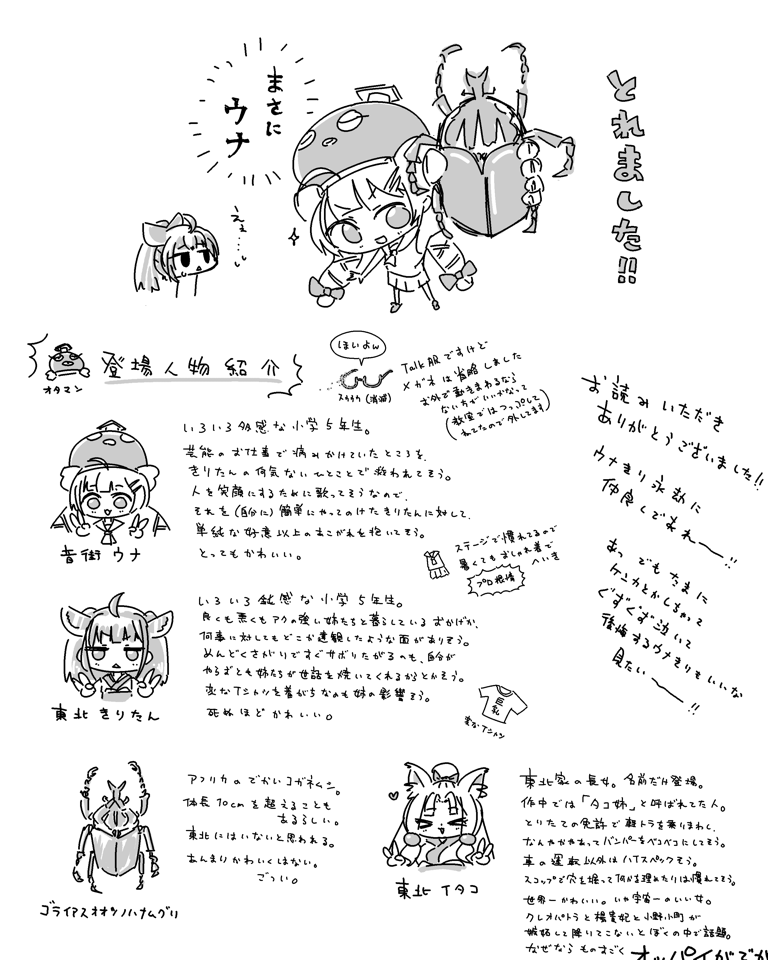 とれました!!
まさに
ウナ
ええ…
登場人物紹介
オタマン
ほいよん
Talk服ですけど
メガネは省略しました
お外で動きまわるなら
ない方がいいかなって
お読みいただき
ありがとうございました!!
ウナきり永劫に
仲良くであれ〜!!
あっ でもたまに
ケンカとかしちゃって
ぐずぐず泣いて
後悔するウナきりもいいな
見たい〜!!
音街ウナ
いろいろ多感な小学5年生。
芸能のお仕事で病みかけていたところを、
きりたんの何気ないひとことで救われてそう。
人を笑顔にするために歌ってそうなので、
それを(自分に)簡単にやってのけたきりたんに対して、
単純な好意以上のあこがれを抱いてそう。
とってもかわいい。
ステージで慣れてるので
暑くてもおしゃれ着で
へいき
プロ根性
東北きりたん
いろいろ鈍感な小学5年生。
良くも悪くもアクの強い姉たちと暮らしているおかげか、
何事に対してもどこか達観したような面がありそう。
めんどくさがりですぐサボりたがるのも、自分が
やらずとも姉たちが世話を焼いてくれるからとかそう。
変なTシャツを着がちなのも姉の影響そう。
死ぬほどかわいい。
変なTシャツ
ゴライアスオオツノハナムグリ
アフリカのでかいコガネムシ。
体長10cmを超えることも
あるらしい。
東北にはいないと思われる。
あんまりかわいくはない。
ごつい。
東北イタコ
東北家の長女。名前だけ登場。
作中では「タコ姉」と呼ばれてた人。
とりたての免許で軽トラを乗りまわし、
なんやかやあってバンパーをベコベコにしてそう。
車の運転以外はハイスペックそう。
スコップで穴を掘って何かを埋めたりは慣れてそう。
世界一かわいい。いや宇宙一のいい女。
クレオパトラと楊貴妃と小野小町が
嫉妬して降りてこないとぼくの中で話題。
なぜなら ものすごく オッパイがでか